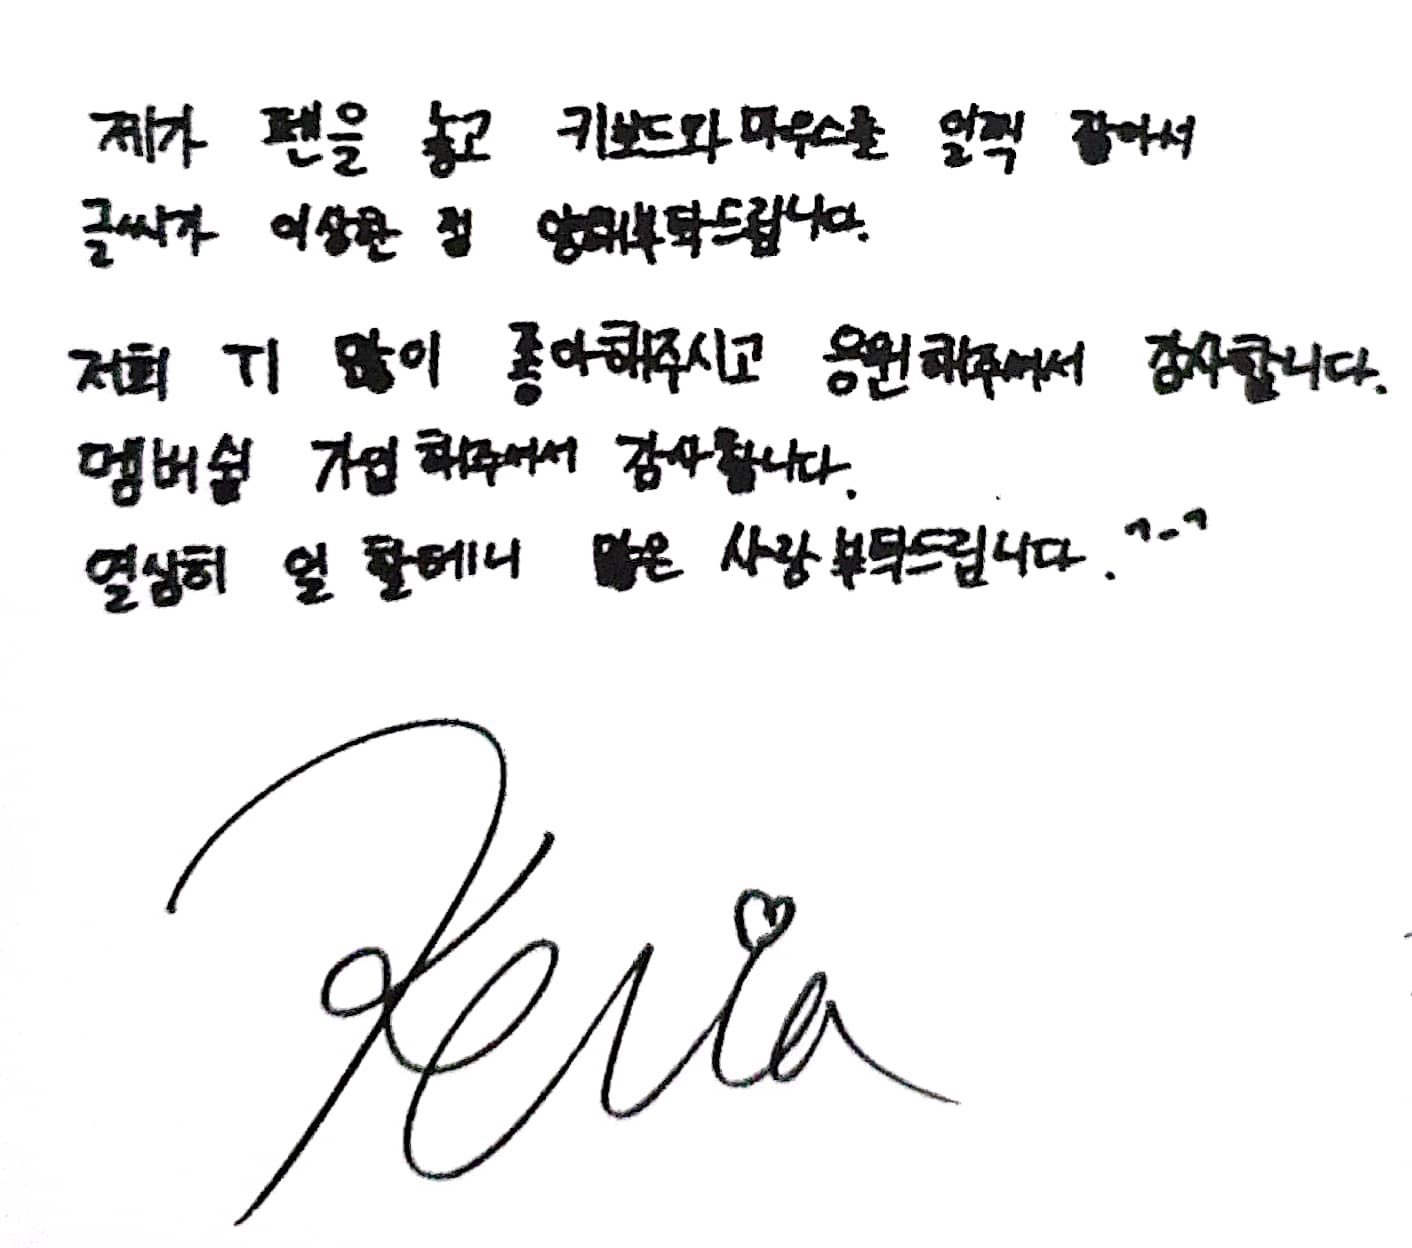 제가 펜을 놓고 키보드와 마우스를 일찍 잡아서
글씨가 이상한 점 양해부탁드립니다.
저희 T1 많이 좋아해주시고 응원해주셔서 감사합니다.
멤버쉽 가입해주셔서 감사합니다.
열심히 일 할테니 많은 사랑부탁드립니다. ^-^
Keria